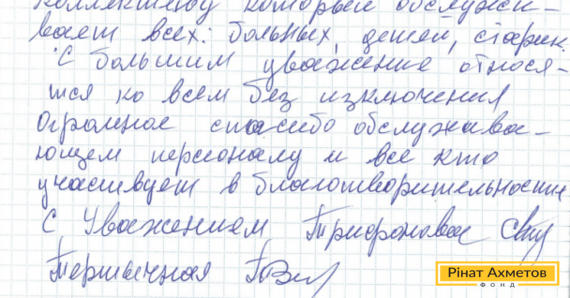 коллективу который обслужи-
вает всех: больных, детей, старик.
С большим уважение относя-
тся ко всем без изключения
Огромное спасибо обслужива-
ющем персоналу и все кто
участвует в благотворительности
С Уважением Трифонова
Рінат Ахметов
ФОНД